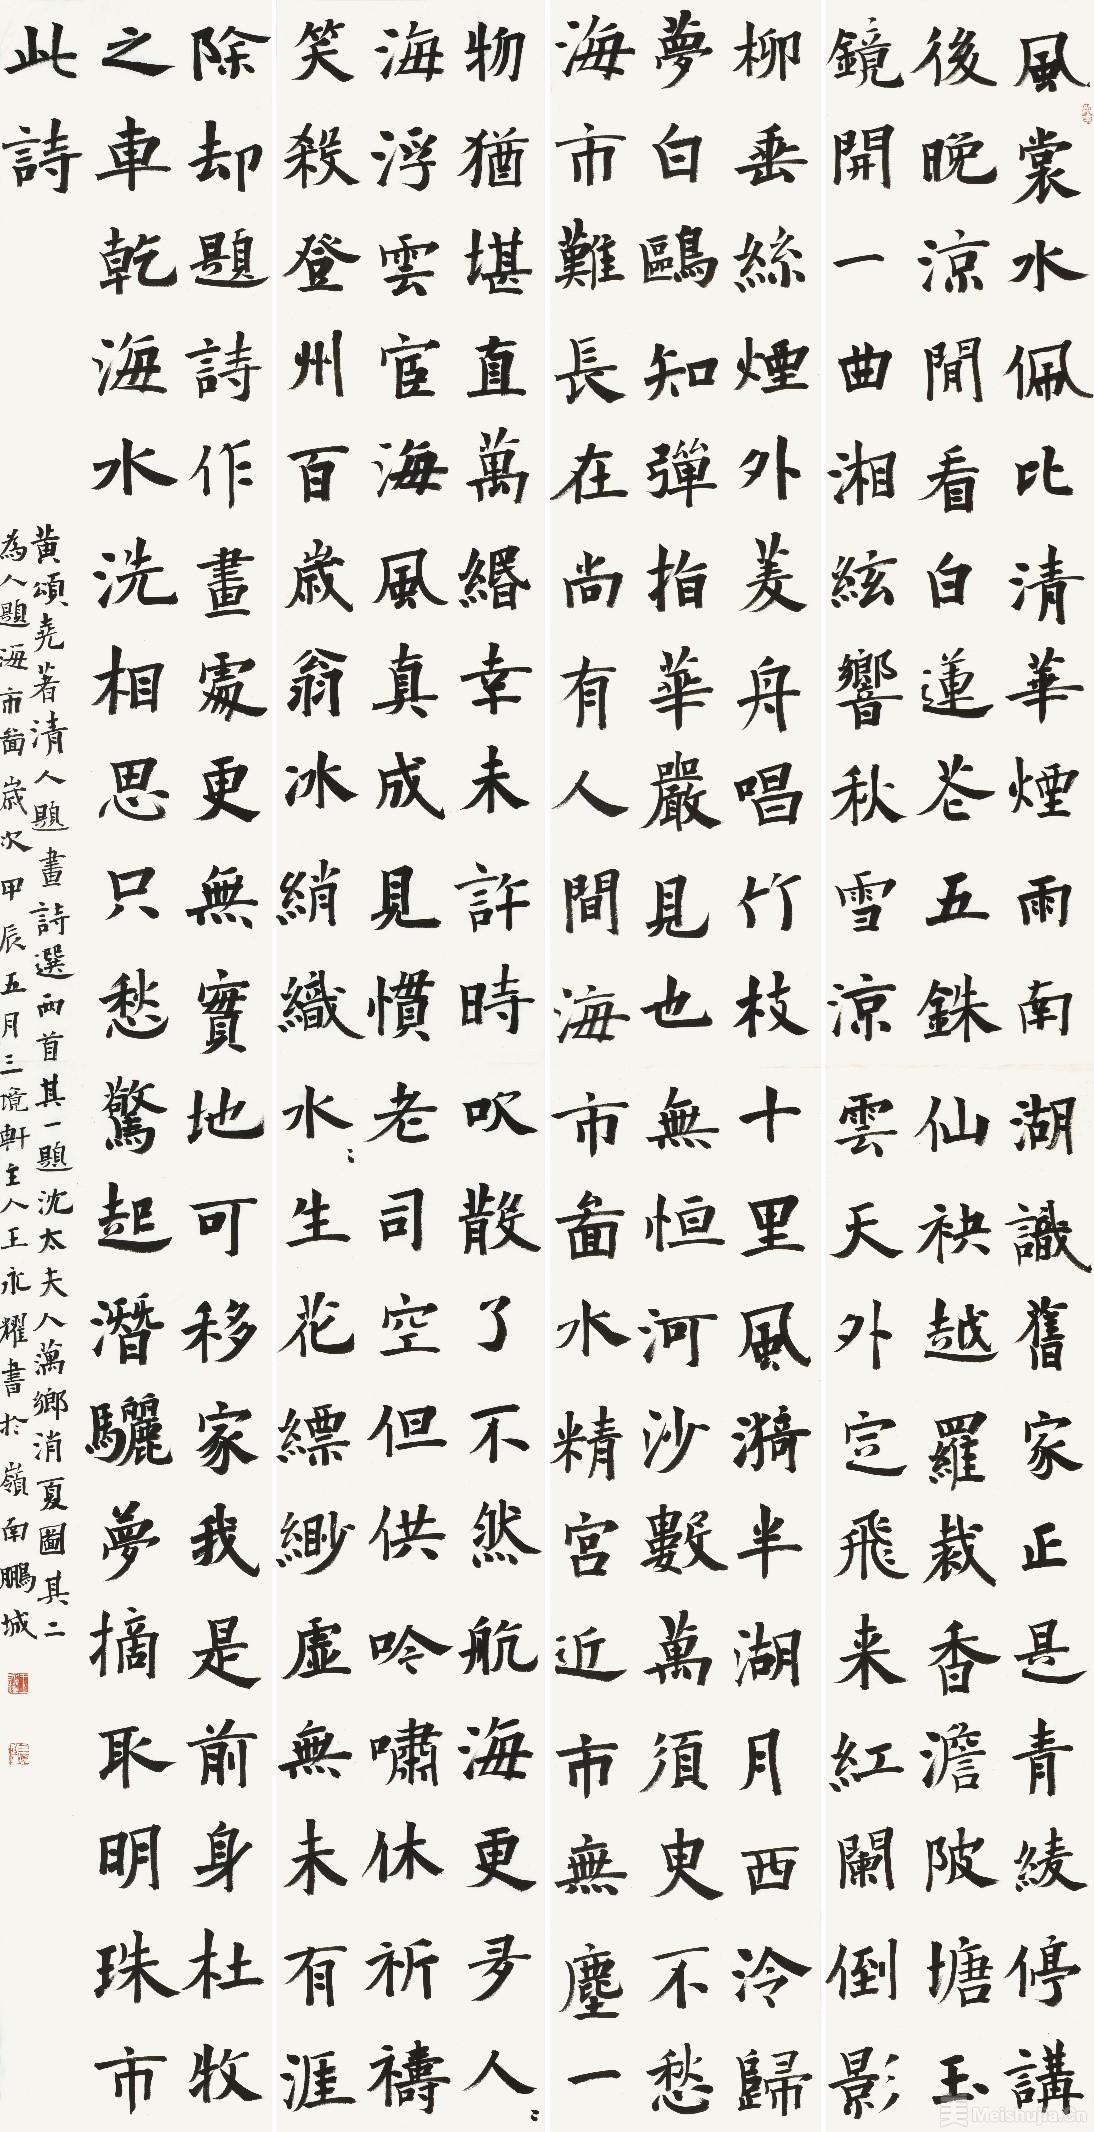 風裳水佩比清華煙雨南湖識舊家正是青綾停講
後晚涼閒看白蓮花五銖仙袂越羅裁香澹陂塘玉
鏡開一曲湘絃響秋雪涼雲天外定飛来紅闌倒影
柳垂絲煙外菱舟唱竹枝十里風漪半湖月西泠歸
夢白鷗知彈指華嚴見也無恒河沙數萬須臾不愁
海市難長在尚有人間海市啚水精宮近市無塵一
物猶堪直萬緡幸未許時吹散了不然航海更多人〻
海浮雲宦海風真成見慣老司空但供吟嘯休祈禱
笑殺登州百歲翁冰綃織水〻生花縹緲虛無未有涯
除却題詩作畫處更無實地可移家我是前身杜牧
之車乾海水洗相思只愁驚起潛驪夢摘取明珠市
此詩
黄頌堯著清人題畫詩選两首其一題沈太夫人藕鄉消夏圖其二
為人題海市啚歲次甲辰五月三境軒主人王永耀書於嶺南鵬城
美 Meishujia.Cn